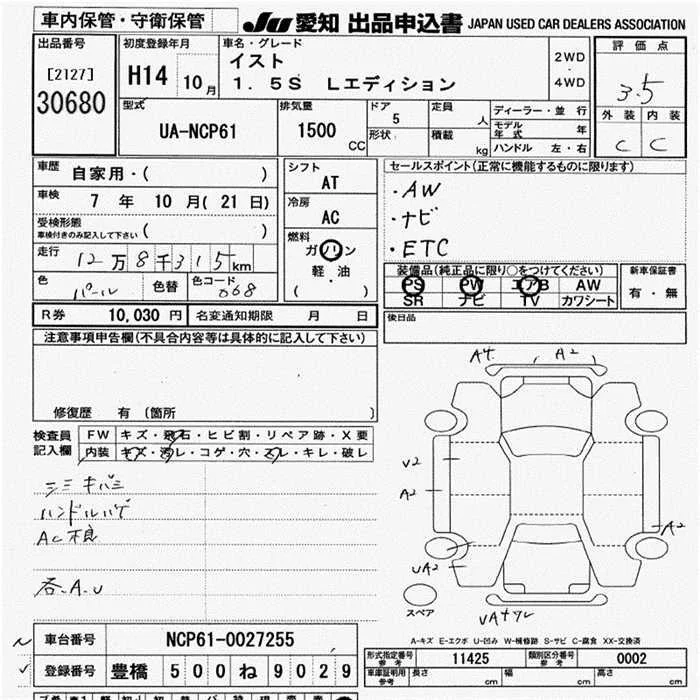 車内保管・守衛保管
JU 愛知 出品申込書 JAPAN USED CAR DEALERS ASSOCIATION
出品番号
[2127]
30680
初度登録年月
H14 10月
車名・グレード
イスト
1.5S Lエディション
2WD
・
4WD
評価点
3.5
外装 内装
C C
型式
UA-NCP61
排気量
1500 CC
ドア
5
形状
定員
人
積載
kg
ディーラー・並 行
モデル年式 年
ハンドル 左・右
車歴
自家用・( )
車検
7年 10月(21日)
受検形態
車検付きのみ記入して下さい ( )
走行
12万8千315km
色
パール
色替
色コード
068
シフト
AT
冷房
AC
燃料
ガソリン
軽・油
( ・ )
セールスポイント(正常に機能するものに限ります)
・AW
・ナビ
・ETC
装備品(純正品に限り○をつけてください)
PS PW エアB AW
SR ナビ TV カワシート
新車保証書
有・無
後日品
R券 10,030円 名変通知期限 月 日
注意事項申告欄(不具合内容等は具体的に記入して下さい)
修復歴 有 (箇所 )
検査員
記入欄
FW キズ・飛石・ヒビ割・リペア跡・X要
内装 キズ・汚レ・コゲ・穴・スレ・キレ・破レ
ハンドルハゲ
AC不良
A4 A2
V2
A2
A2
UA2
スペア
A-キズ E-エクボ U-凹み W-補修跡 S-サビ C-腐食 XX-交換済
車台番号 NCP61-0027255
登録番号 豊橋 500 ね 9029
形式指定番号
参考
11425
類別区分番号
参考
0002
車庫証明用
参考
長さ cm 幅 cm 高さ cm